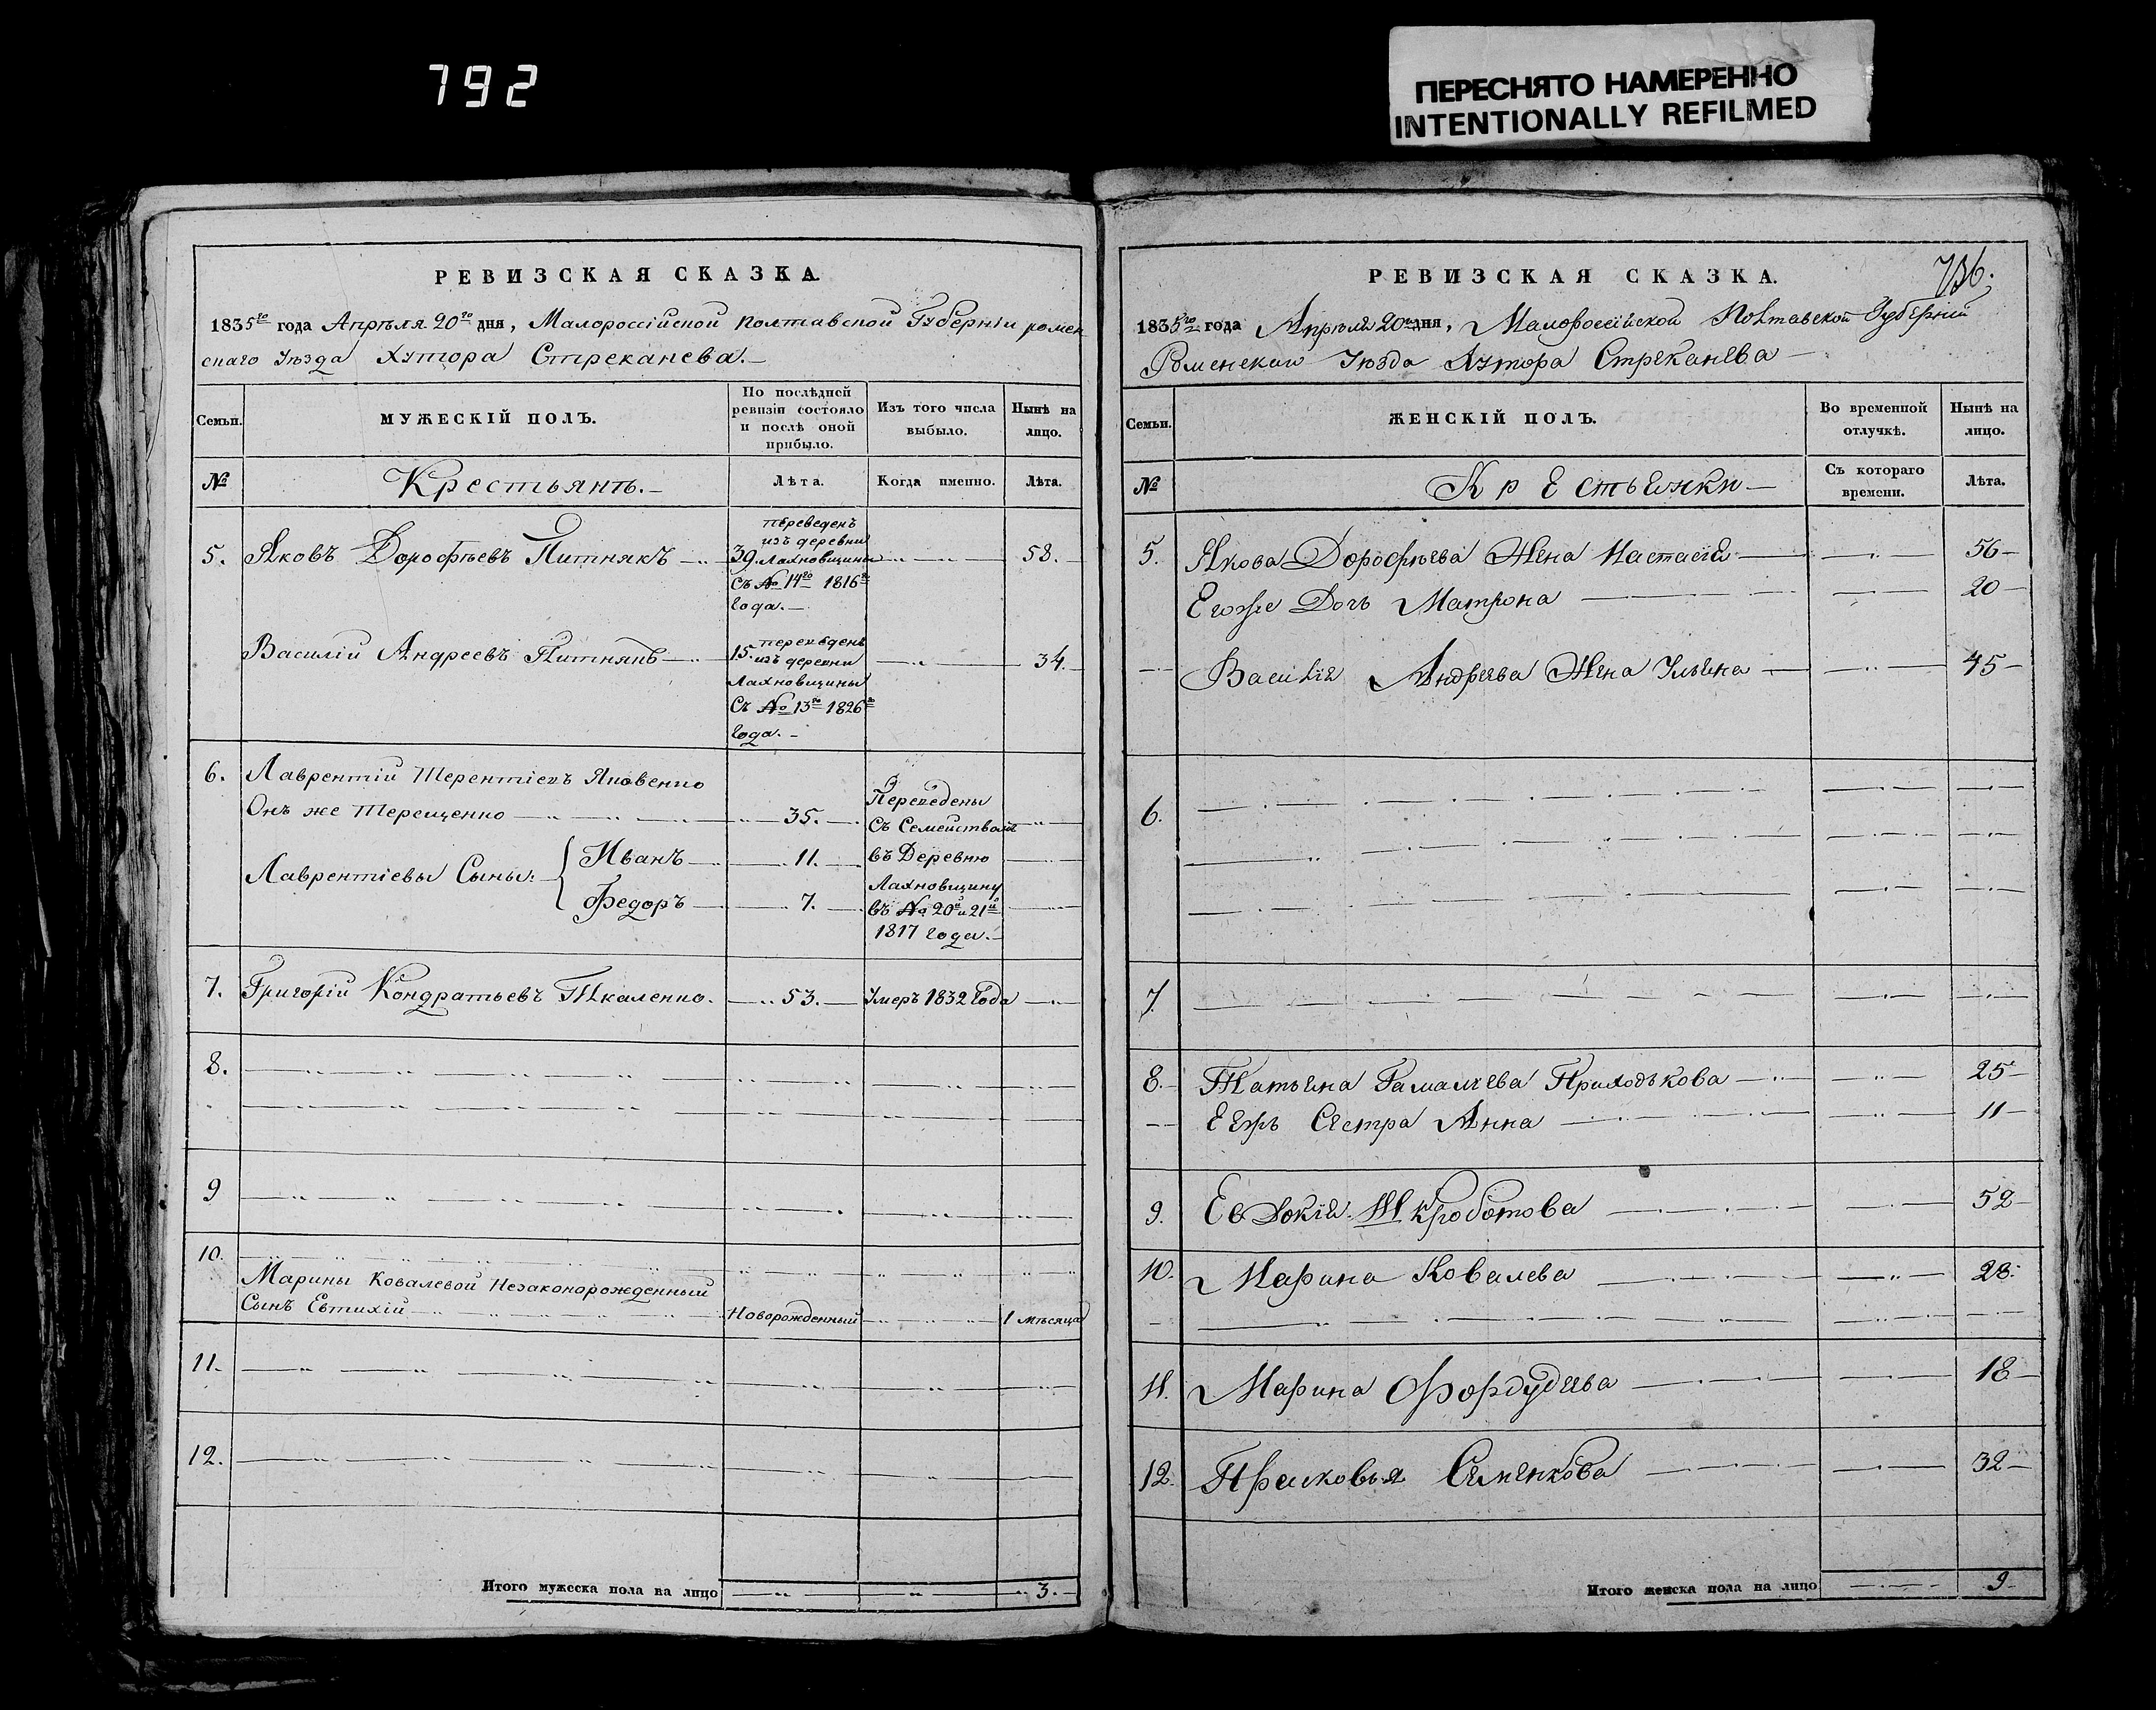 792
ПЕРЕСНЯТО НАМЕРЕННО
INTENTIONALLY REFILMED
РЕВИЗСКАЯ СКАЗКА.
1835го года Апрѣля 20го дня, Малороссійской Полтавской Губерніи ромен
скаго Уѣзда Хутора Стреканева.
Семьи.
МУЖЕСКІЙ ПОЛЪ.
По послѣдней
ревизіи состояло
и послѣ оной
прибыло.
Изъ того числа
выбыло.
Нынѣ на
лицо.
№
Крестьянъ.
Лѣта.
Когда именно.
Лѣта.
5. Яковъ Дорофѣевъ Питнякъ
переведенъ
изъ деревни
39. Лахновщины
Съ № 14го 1816го
года.
58.
Василій Андреевъ Питнякъ
15. переведенъ
изъ деревни
Лахновщины
Съ № 13го 1826го
года.
34.
6. Лаврентій Терентіевъ Яковенко
Онъ же Терещенко
35.
Лаврентіевы Сыны:
Иванъ 11.
Федоръ 7.
Переведены
Съ Семействомъ
въ Деревню
Лахновщину
въ № 20й и 21й
1817 года.
7. Григорій Кондратьевъ Ткаленко. 53. Умеръ 1832 Года
8.
9
10.
Марины Ковалевой Незаконорожденный
Сынъ Евтихій Новорожденный 1 мѣсяца
11.
12.
Итого мужеска пола на лицо 3.
РЕВИЗСКАЯ СКАЗКА.
736.
1835го года Апрѣля 20го дня, Малороссійской Полтавской Губерніи
Роменскаго Уѣзда Хутора Стреканева
Семьи.
ЖЕНСКІЙ ПОЛЪ.
Во временной
отлучкѣ.
Нынѣ на
лицо.
№
Крестьянки
Съ котораго
времени.
Лѣта.
5. Якова Дорофѣева Жена Настасія 56
Егоже Дочь Матрона 20
Василія Андреева Жена Ульяна 45
6.
7.
8. Татьяна Гамалѣева Приходькова 25
Еяжъ Сестра Анна 11
9. Евдокія Шкроботова 52
10. Марина Ковалева 28.
11. Марина Фордудиева 18
12. Прасковья Семенкова 32
Итого женска пола на лицо 9